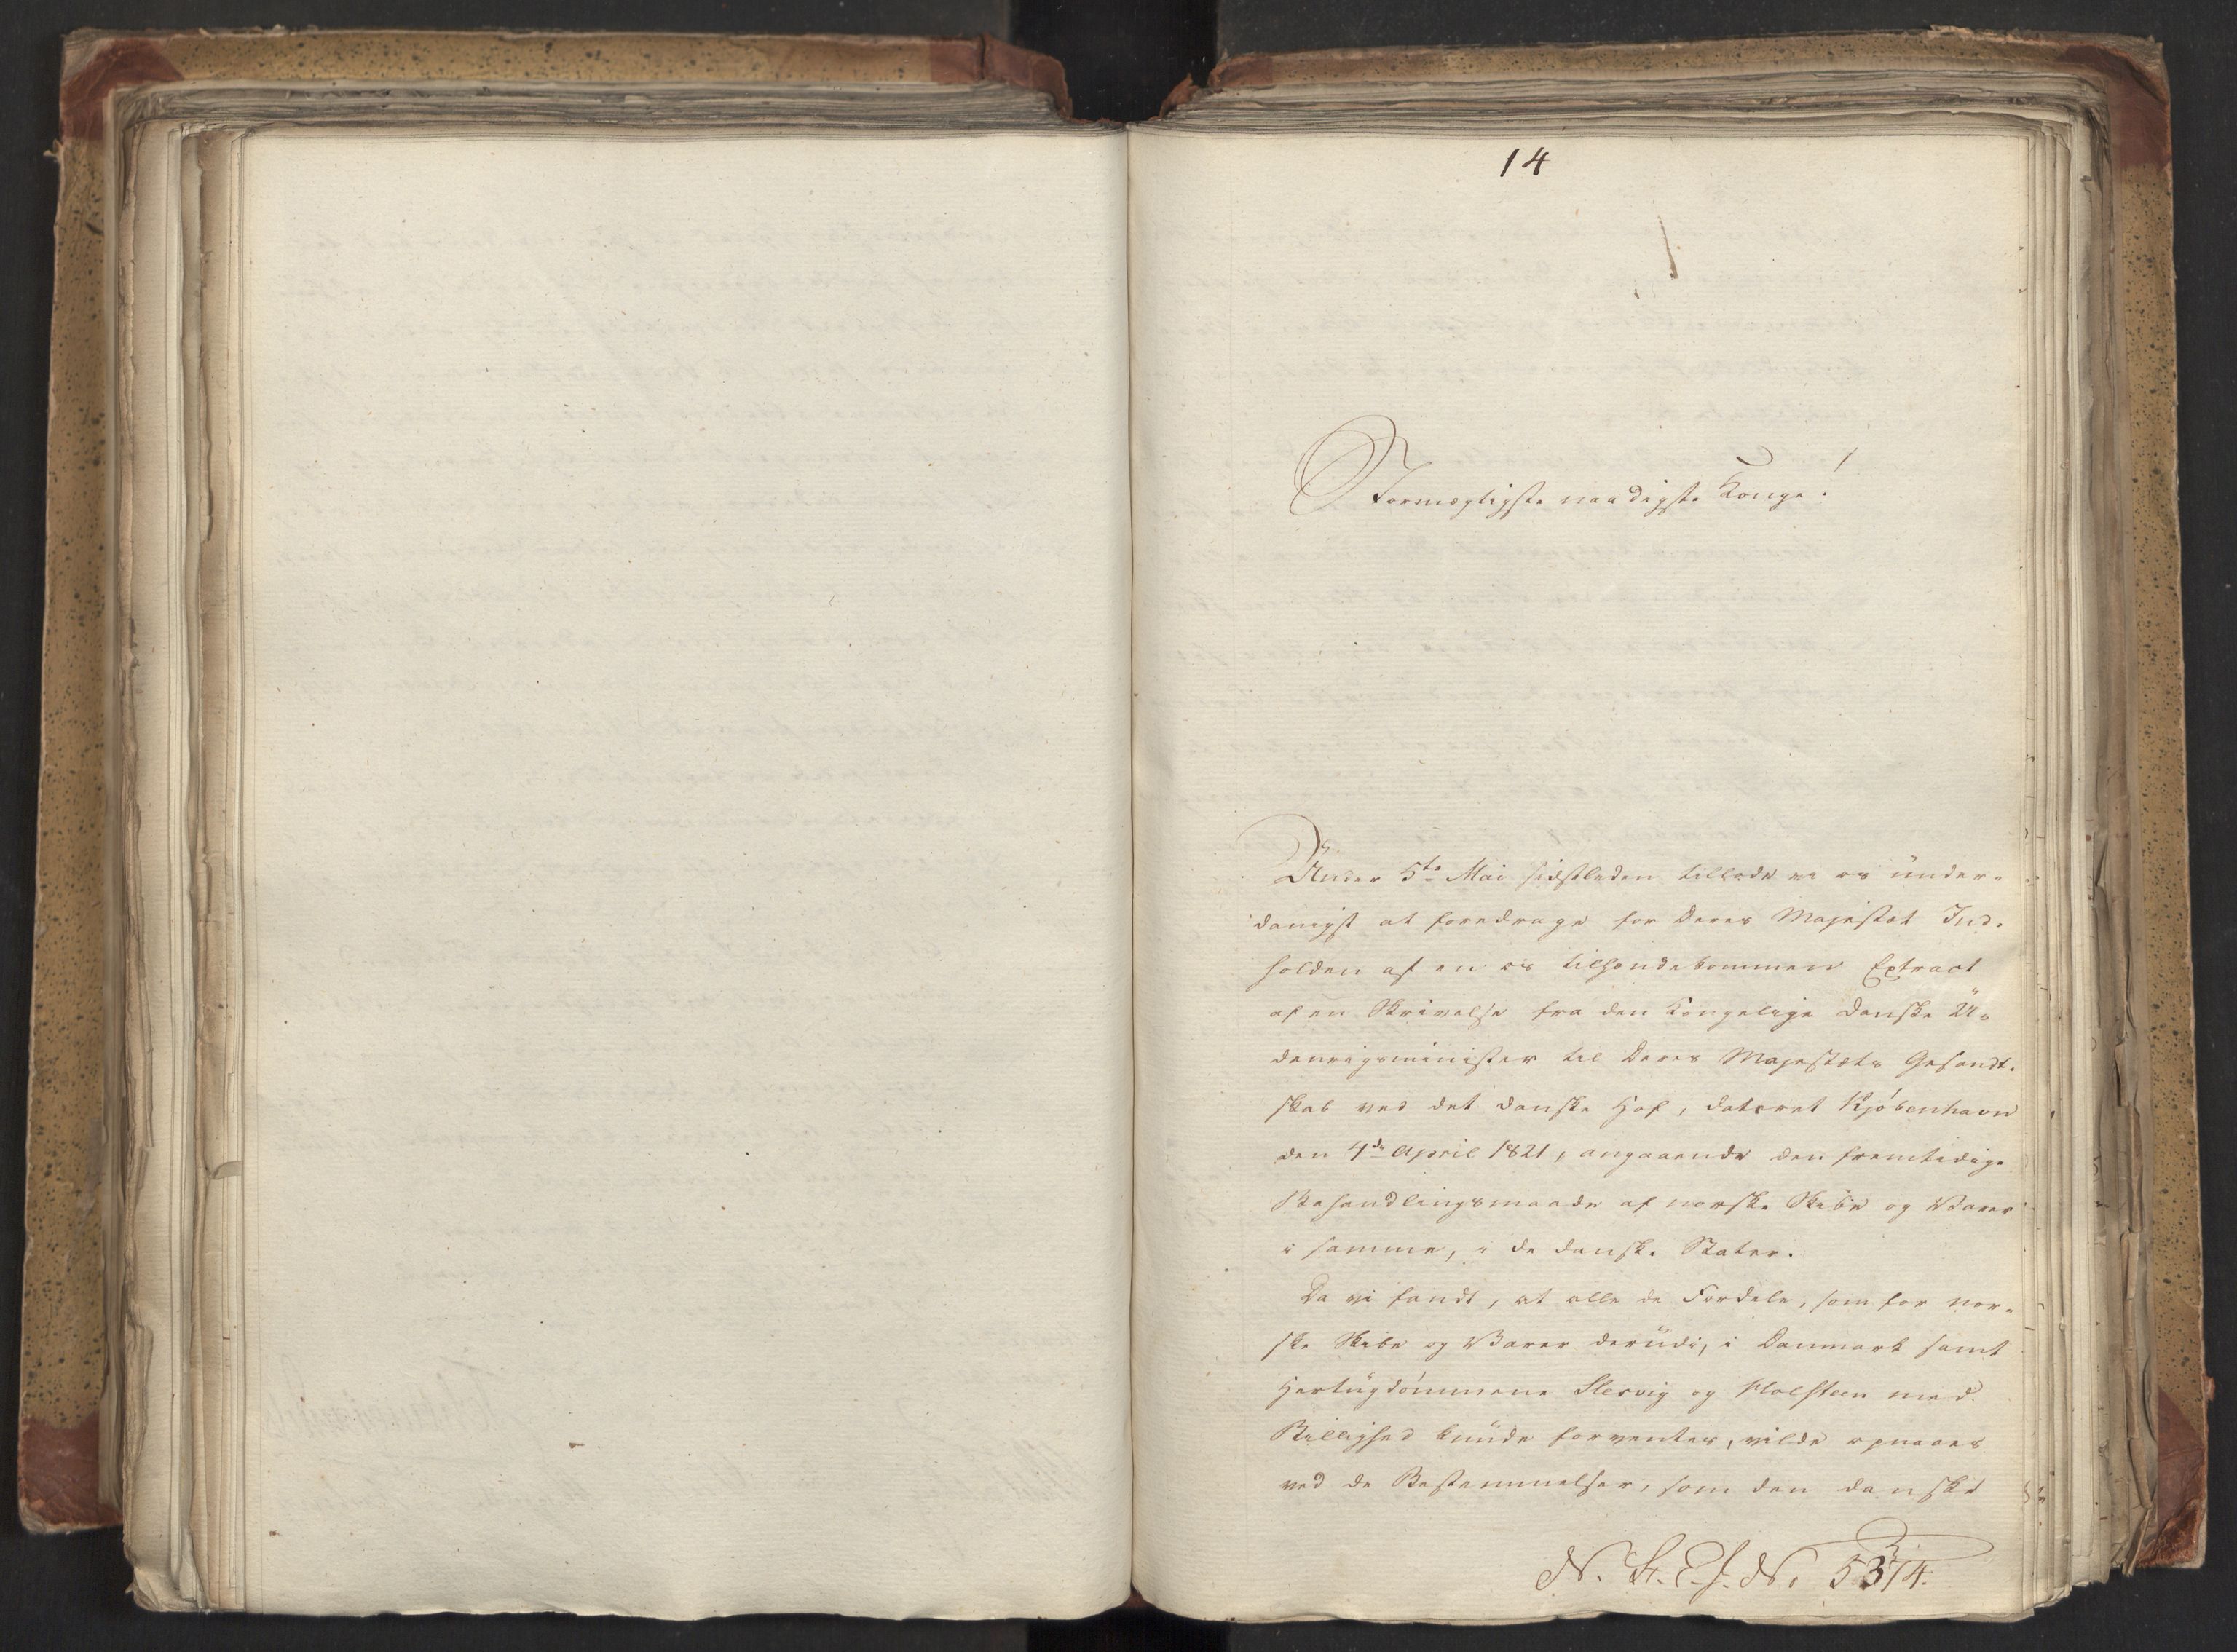 14
Stormægtigste naadigste Konge!
Under 5te Mai sidstleden tillode vi os under-
danigst at foredrage for Deres Majestæt Ind-
holden af en os tilhændekommen Extract
af en Skrivelse fra den Kongelige danske U-
denrigsminister til Deres Majestæts Gesandt-
skab ved det danske Hof, dateret Kjøbenhavn
den 4de April 1821, angaaende den fremtidige
Behandlingsmaade af norske Skibe og Varer
i samme, i de danske Stater.
Da vi fandt, at alle de Fordele, som for nor-
ske Skibe og Varer derudi, i Danmark samt
Hertugdømmene Slesvig og Holsteen med
Billighed kunde forventes, vilde opnaaes
ved de Bestemmelser, som den danske
N. St. E. J. No 5374.